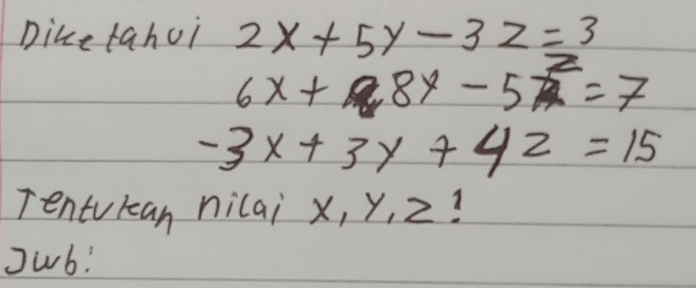 Diketahui 2x + 5y - 3z = 3
6x + 8y - 5z = 7
-3x + 3y + 4z = 15
Tentukan nilai x, y, z!
Jwb: